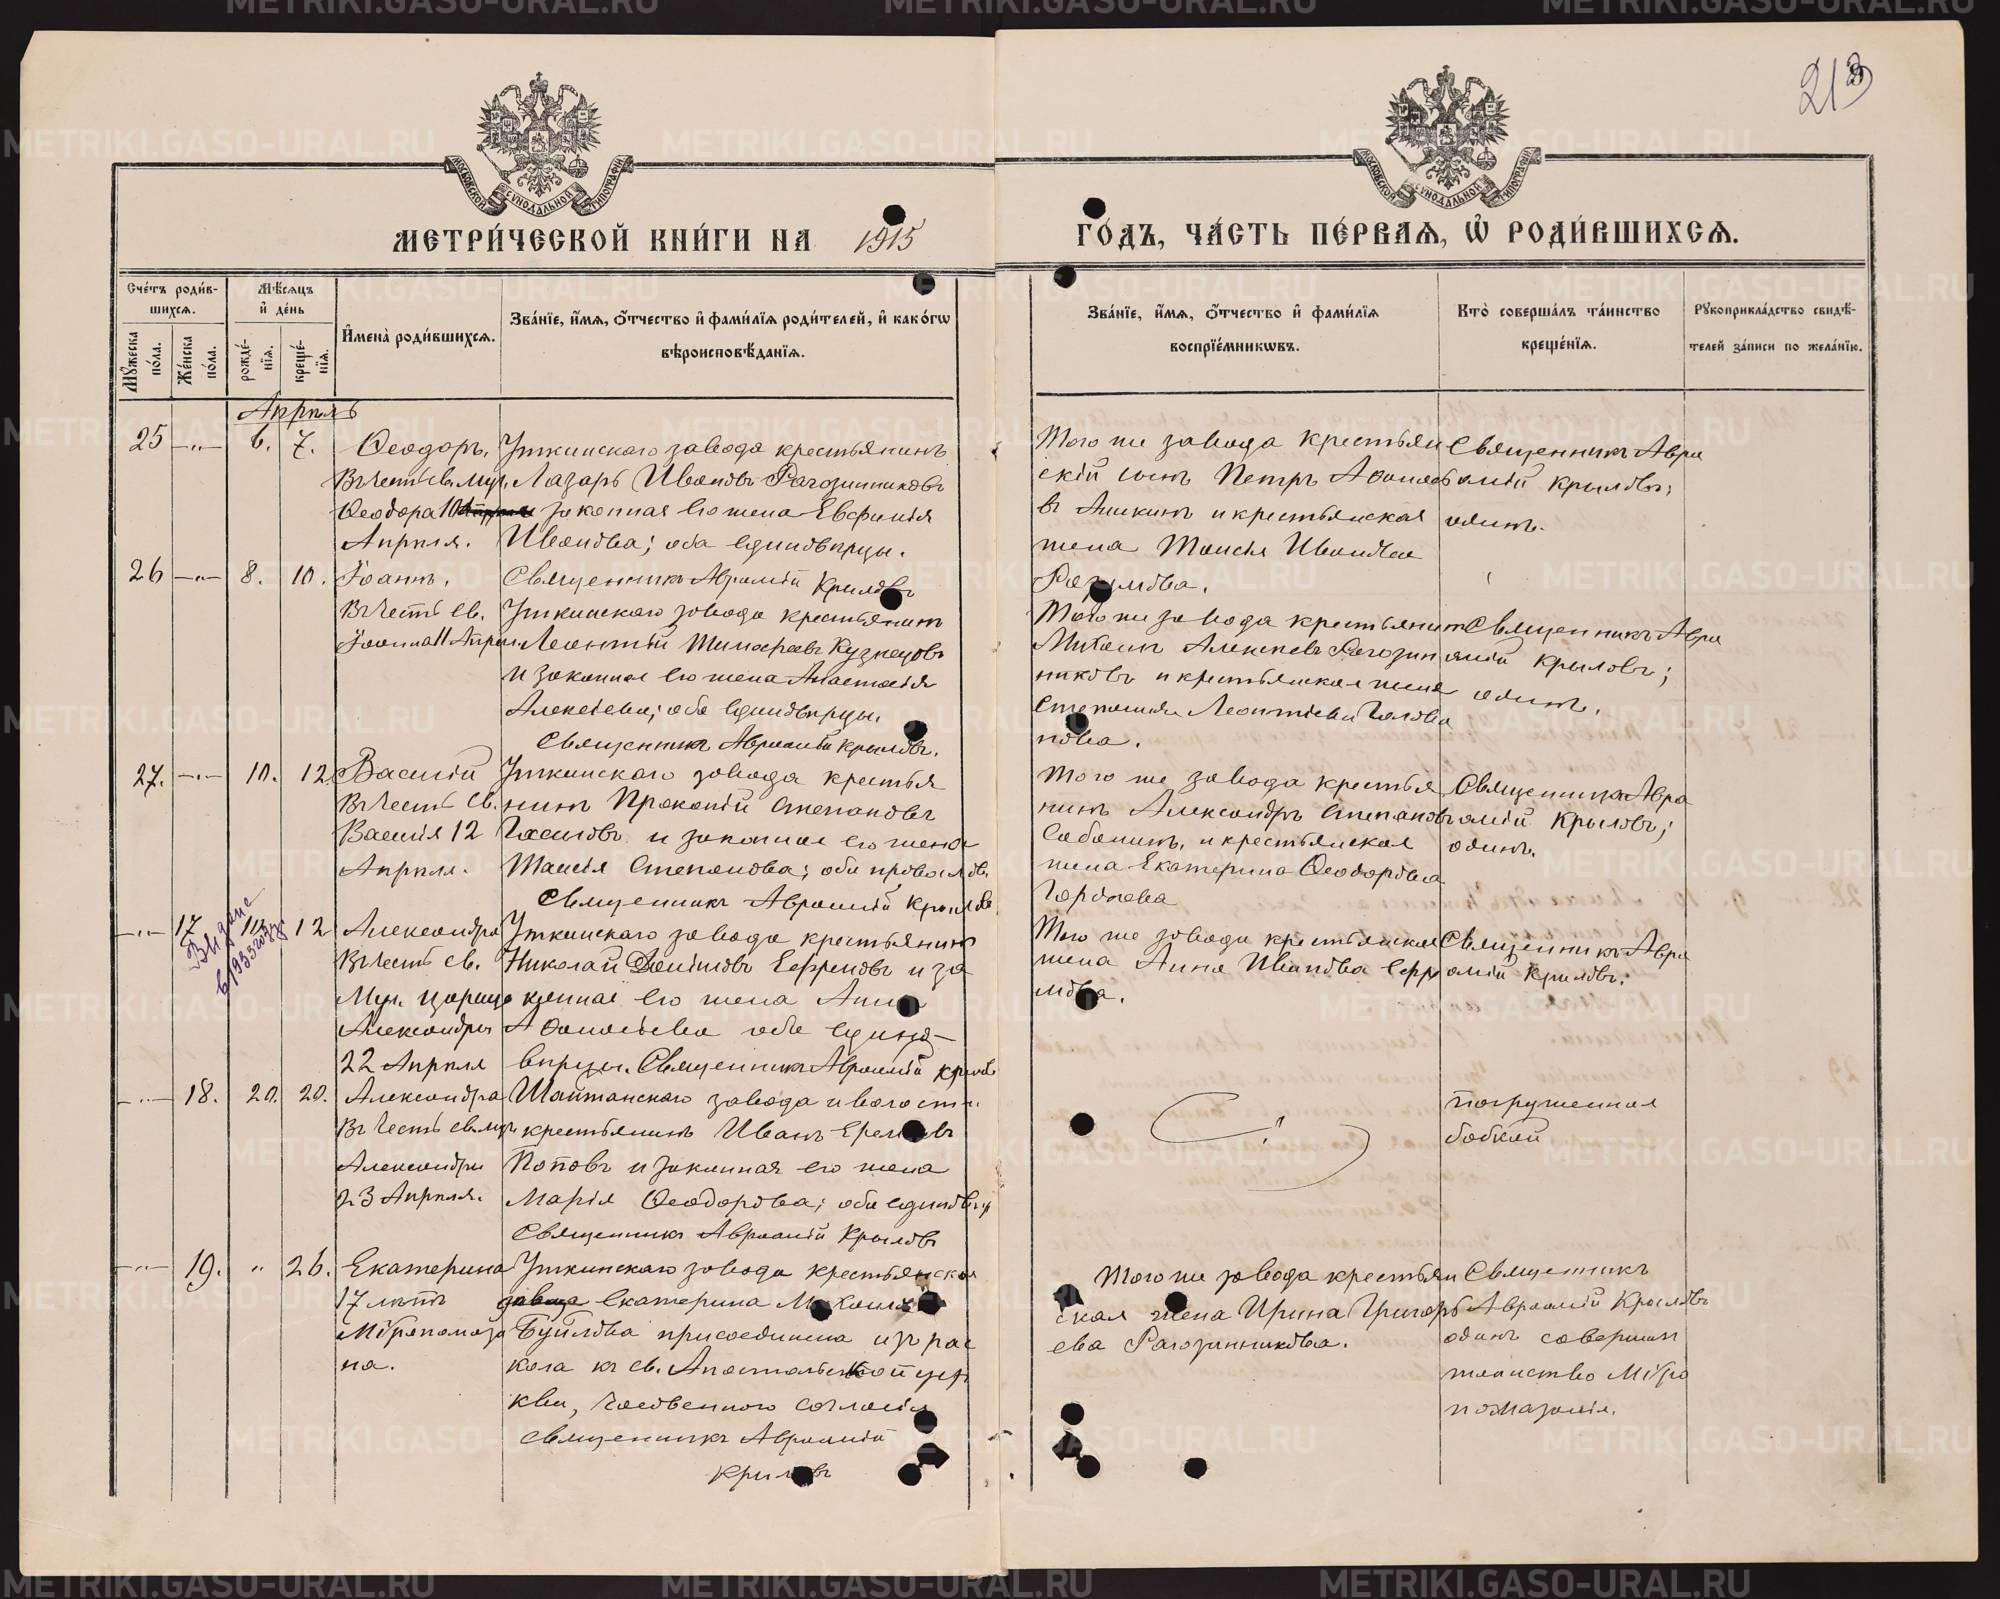 213
МОСКОВСКОЙ СУНОДАЛЬНОЙ ТИПОГРАФІИ
МОСКОВСКОЙ СУНОДАЛЬНОЙ ТИПОГРАФІИ
МЕТРИ́ЧЕСКОЙ КНИ́ГИ НА 1915
ГО́ДЪ, ЧА́СТЬ ПЕ́РВАѦ, Ѡ҆ РОДИ́ВШИХСѦ.
Сче́тъ роди́в-
шихсѧ.
Мꙋ́жеска по́ла.
Же́нска по́ла.
Мѣ́сѧцъ
и҆ де́нь
рожде́-
нїѧ.
креще́-
нїѧ.
И҆мена̀ роди́вшихсѧ.
Зва́нїе, и҆́мѧ, ѻ҆́тчество и҆ фами́лїѧ роди́телей, и҆ како́гѡ
вѣроисповѣ́данїѧ.
Зва́нїе, и҆́мѧ, ѻ҆́тчество и҆ фами́лїѧ
воспрїе́мникѡвъ.
Кто̀ соверша́лъ та́инство
креще́нїѧ.
Рꙋкоприкла́дство свидѣ́-
телей за́писи по жела́нїю.
Апрѣль
25 —"— 6. 7.
Ѳеодоръ.
Въ честь св. муч.
Ѳеодора 10
Апрѣля.
Уткинскаго завода крестьянинъ
Лазарь Ивановъ Рагозинниковъ
законная его жена Евфимія
Иванова; оба единовѣрцы.
Священникъ Авраамій Крыловъ
Того же завода крестьян
скій сынъ Петръ Аѳанась
въ и крестьянская
жена Таисія Иванова
Священникъ Авра
амій Крыловъ;
одинъ.
26 —"— 8. 10.
Іоаннъ.
Въ честь св.
Іоанна 11 Апрѣл
Уткинскаго завода крестьянинъ
Леонтій Тимоѳеевъ Кузнецовъ
и законная его жена Анастасія
Алексіева; оба единовѣрцы.
Священникъ Авраамій Крыловъ.
Того же завода крестьянинъ
Михаилъ Алексѣевъ Рагозин
никовъ и крестьянская жена
Степанида Леонтіева Голова
нова.
Священникъ Авра
амій Крыловъ;
одинъ.
27. —"— 10. 12.
Василій
Въ честь св.
Василія 12
Апрѣля.
Уткинскаго завода крестья
нинъ Прокопій Степановъ
и законная его жена
Таисія Степанова; оба православ.
Священникъ Авраамій Крылов
Того же завода крестья
нинъ Александръ Степановъ
Сабанинъ, и крестьянская
жена Екатерина Ѳеодорова
Горбнова
Священникъ Авра
амій Крыловъ;
одинъ.
—"— 17 10. 12
Выдано
в 1933
Александра
Въ честь св.
Муч. царицы
Александры
22 Апрѣля
Уткинскаго завода крестьянинъ
Николай Даніиловъ Ефремовъ и за
конная его жена Анна
Аѳанасіева оба едино-
вѣрцы. Священникъ Авраамій Крылов
Того же завода крестьянская
жена Анна Иванова Ефре
мова.
Священникъ Авра
амій Крыловъ.
—"— 18. 20. 20.
Александра
Въ честь св. муч
Александры
23 Апрѣля.
Шайтанскаго завода и волости
крестьянинъ Иванъ
Поповъ и законная его жена
Марія Ѳеодорова; оба единовѣр
Священникъ Авраамій Крыловъ
погруженная
бабкой
—"— 19. " 26.
Екатерина
17 лѣтъ
Мѵропомаза
на.
Уткинскаго завода крестьянская
девица Екатерина Михаил
Буйлова присоединена изъ рас
кола къ св. Апостольской цер
кви, согласія
Священникъ Авраамій
Крыловъ
Того же завода крестьян
ская жена Ирина Григорь
ева Рагозинникова.
Священникъ
Авраамій Крыловъ
одинъ совершил
таинство Мѵро
помазанія.